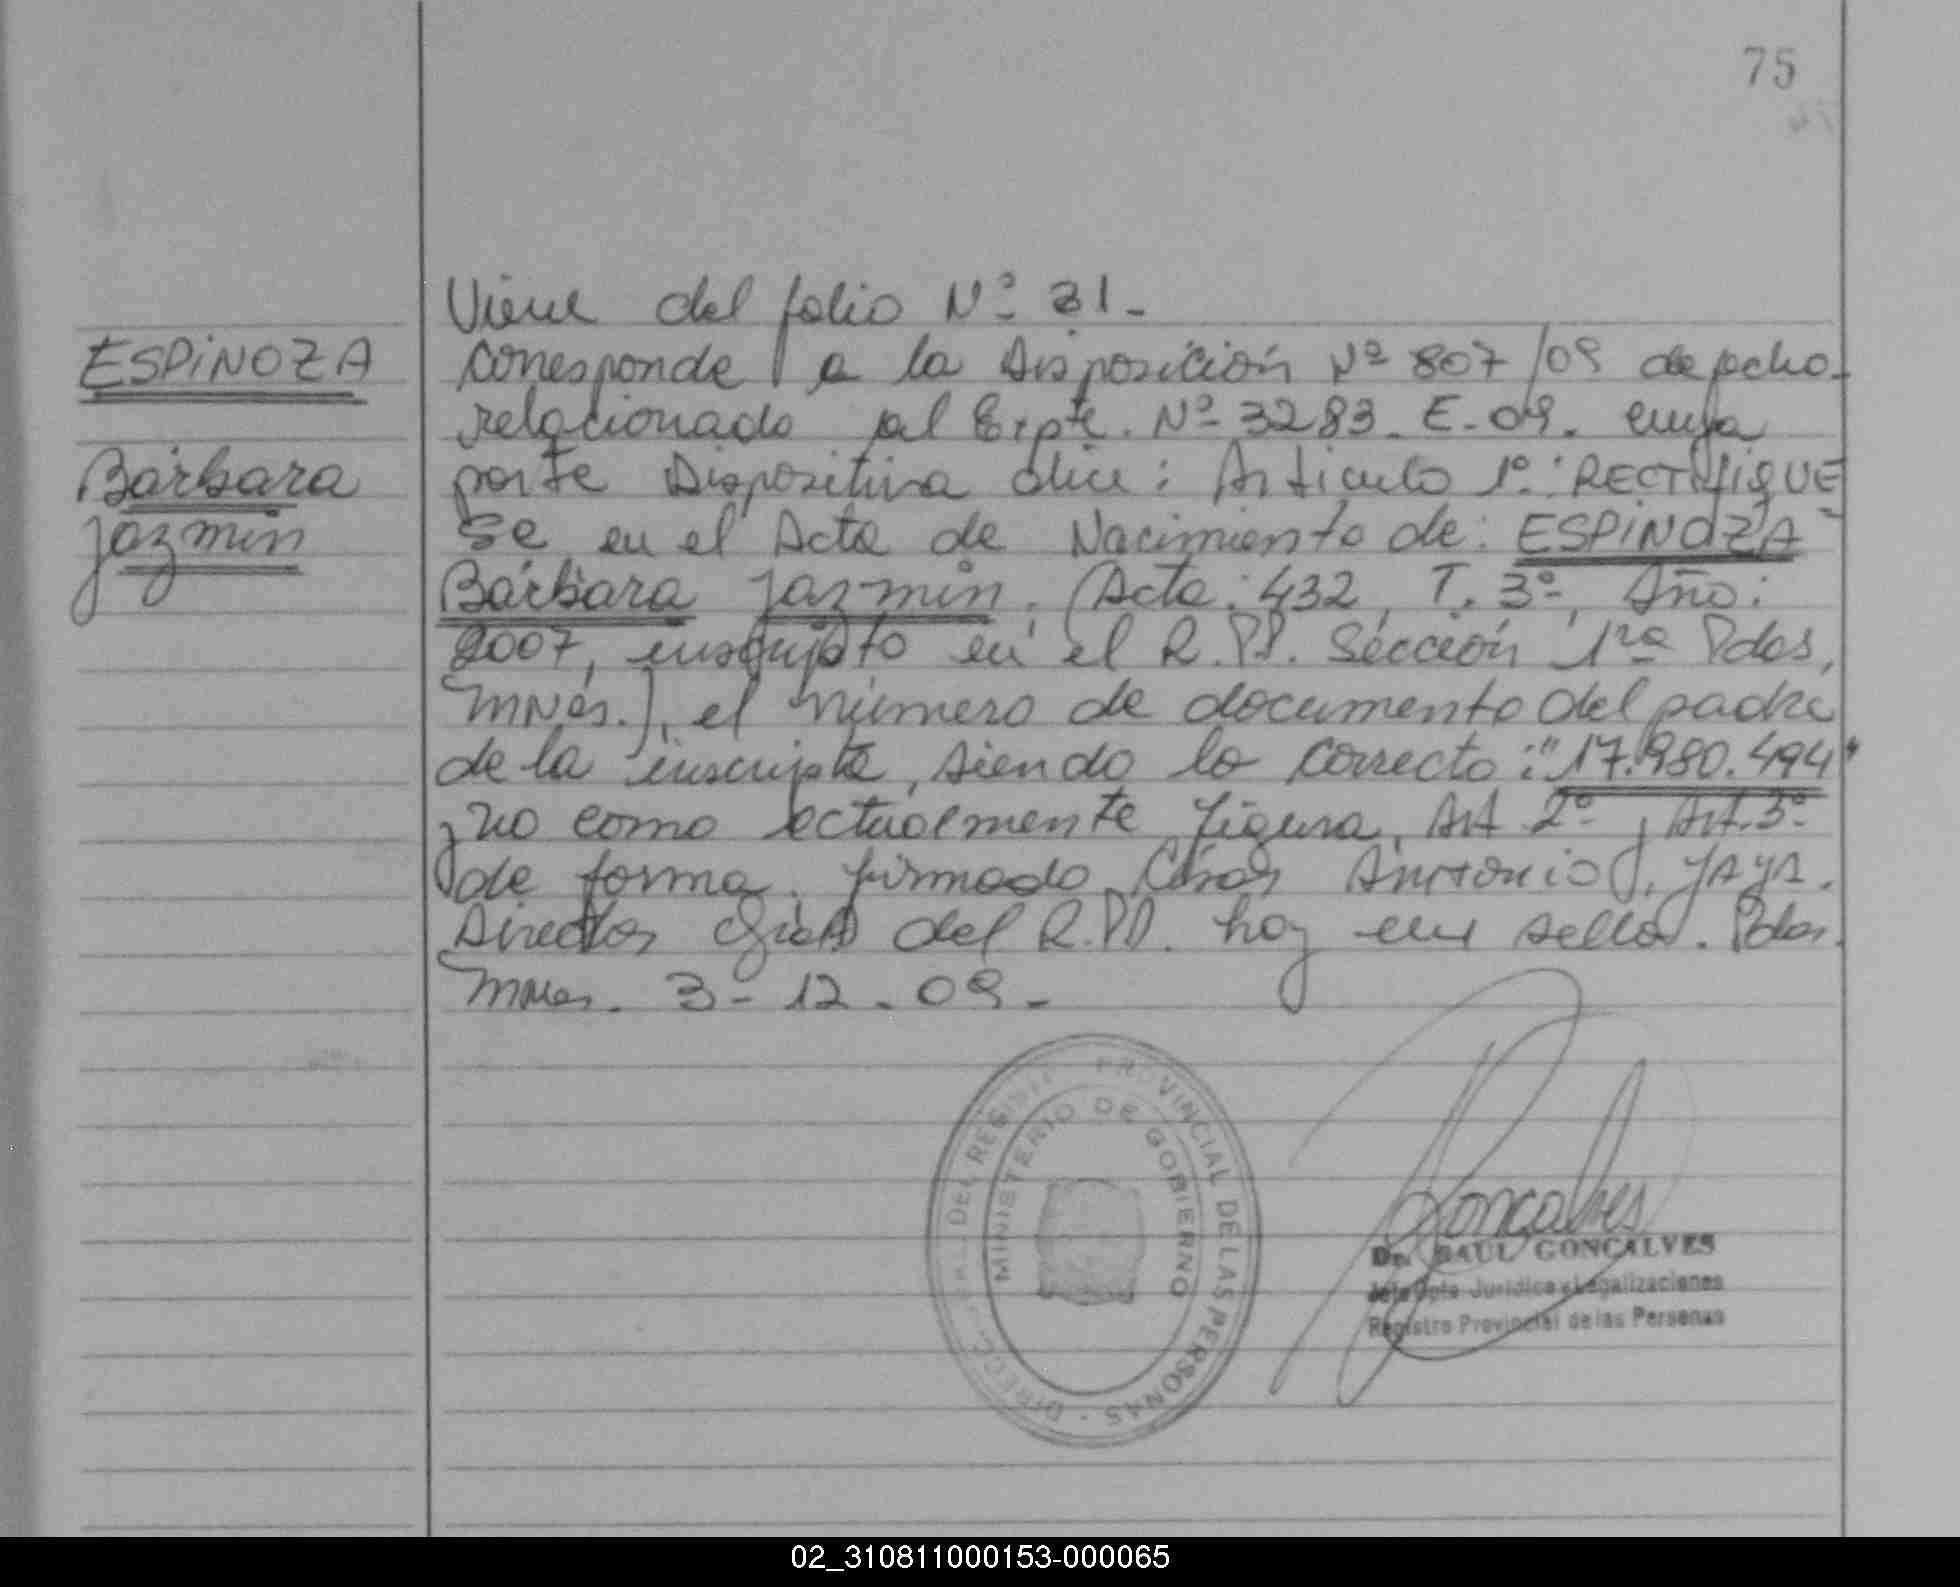 75
ESPINOZA
Bárbara
Jazmin
Viene del folio Nº 31-
Corresponde a la Disposición Nº 807/09 de fecho-
relacionado al Expte. Nº 3283-E-09. cuya
parte Dispositiva dice: Articulo 1º: RECTIFIQUE
se en el Acta de Nacimiento de: ESPINOZA-
Bárbara Jazmin, (Acta: 432, T. 3º, Año:
2007, inscripto en el R.PP. Sección 1ra Pdas,
Mnes.), el número de documento del padre
de la inscripta, siendo lo correcto: "17.980.494"
y no como actualmente figura, Art 2º y Art. 3º
de forma, firmado César Antonio J. YAYA.
Director Gral del R.PP. hay un sello. Pdas.
Mnes. 3-12-09-
DIRECC. GRAL. DEL REGISTRO PROVINCIAL DE LAS PERSONAS -
MINISTERIO DE GOBIERNO
Goncalves
Dr. SAUL GONCALVES
Jefe Dpto Jurídico y Legalizaciones
Registro Provincial de las Personas
02_310811000153-000065